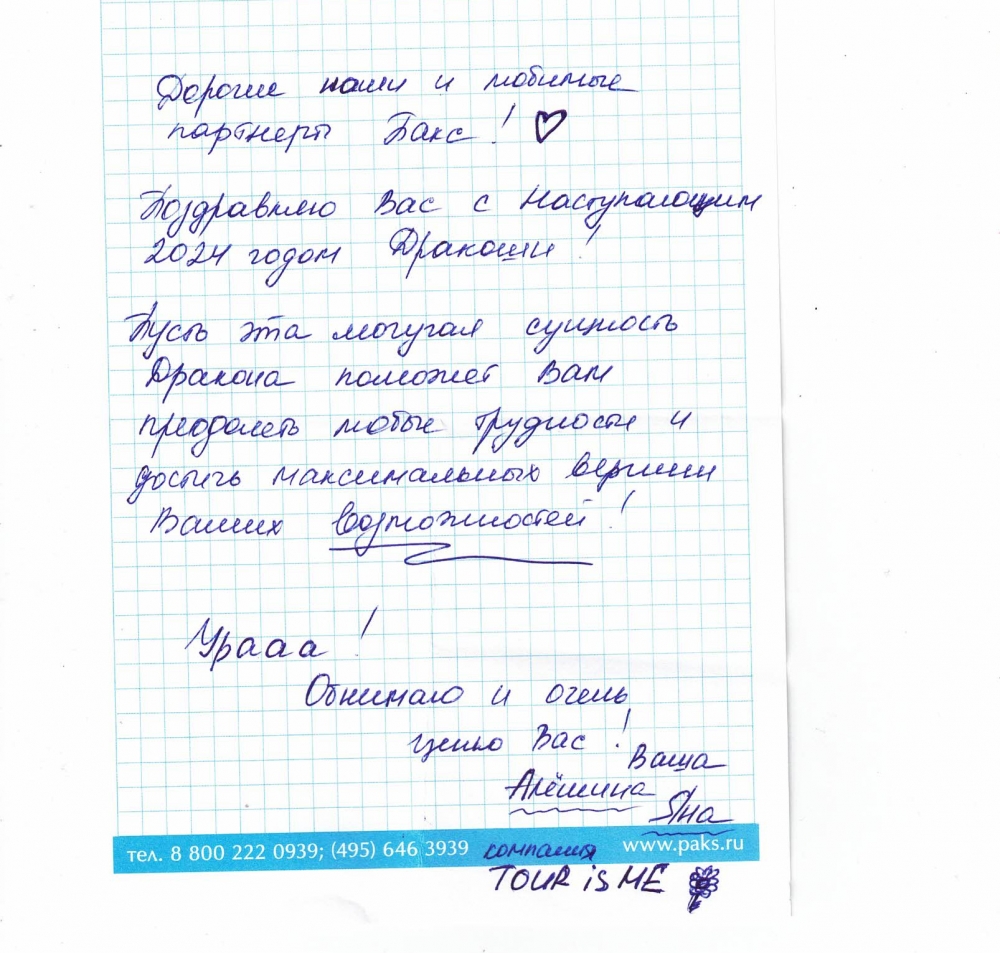 Дорогие наши и любимые
партнеры Пакс!
Поздравляю Вас с Наступающим
2024 годом Дракоши!
Пусть эта могучая сущность
Дракона поможет Вам
преодолеть любые трудности и
достичь максимальных вершин
Ваших Возможностей!
Урааа!
Обнимаю и очень
ценю Вас!
Ваша
Алёшина
Яна
тел. 8 800 222 0939; (495) 646 3939 компания www.paks.ru
TOUR is ME